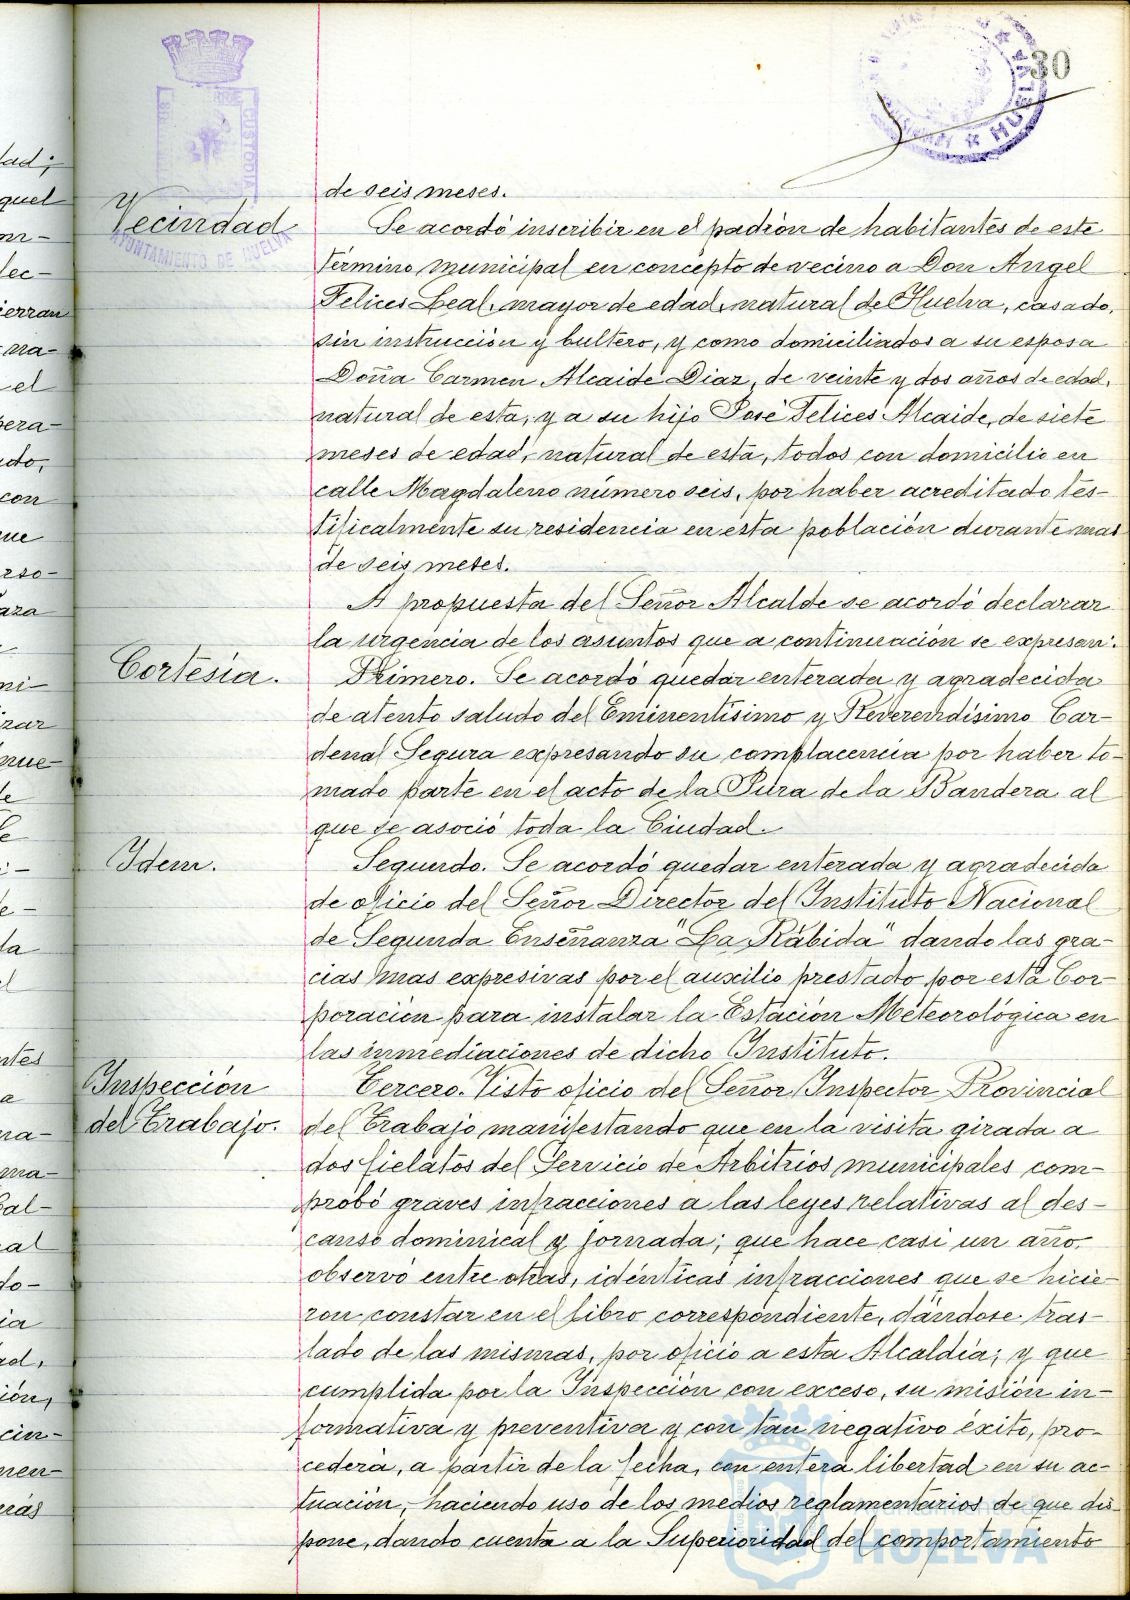 30
HUELVA
AYUNTAMIENTO DE HUELVA
de seis meses.
Vecindad
Se acordó inscribir en el padrón de habitantes de este
término municipal en concepto de vecino a Don Angel
Felices Leal, mayor de edad, natural de Huelva, casado,
sin instrucción y bultero, y como domiciliados a su esposa
Doña Carmen Alcaide Diaz, de veinte y dos años de edad,
natural de esta, y a su hijo José Felices Alcaide, de siete
meses de edad, natural de esta, todos con domicilio en
calle Magdaleno número seis, por haber acreditado tes-
tificalmente su residencia en esta población durante mas
de seis meses.
A propuesta del Señor Alcalde se acordó declarar
la urgencia de los asuntos que a continuación se expresan:
Cortesía.
Primero. Se acordó quedar enterada y agradecida
de atento saludo del Eminentísimo y Reverendísimo Car-
denal Segura expresando su complacencia por haber to-
mado parte en el acto de la Jura de la Bandera al
que se asoció toda la Ciudad.
Idem.
Segundo. Se acordó quedar enterada y agradecida
de oficio del Señor Director del Instituto Nacional
de Segunda Enseñanza "La Rábida" dando las gra-
cias mas expresivas por el auxilio prestado por esta Cor-
poración para instalar la Estación Meteorológica en
las inmediaciones de dicho Instituto.
Inspección
del Trabajo.
Tercero. Visto oficio del Señor Inspector Provincial
del Trabajo manifestando que en la visita girada a
dos fielatos del Servicio de Arbitrios municipales com-
probó graves infracciones a las leyes relativas al des-
canso dominical y jornada; que hace casi un año,
observó entre otras, idénticas infracciones que se hicie-
ron constar en el libro correspondiente, dándose tras-
lado de las mismas, por oficio a esta Alcaldía; y que
cumplida por la Inspección con exceso, su misión in-
formativa y preventiva y con tan negativo éxito, pro-
cederá, a partir de la fecha, con entera libertad en su ac-
tuación, haciendo uso de los medios reglamentarios de que dis
pone, dando cuenta a la Superioridad del comportamiento
Ayuntamiento de
HUELVA